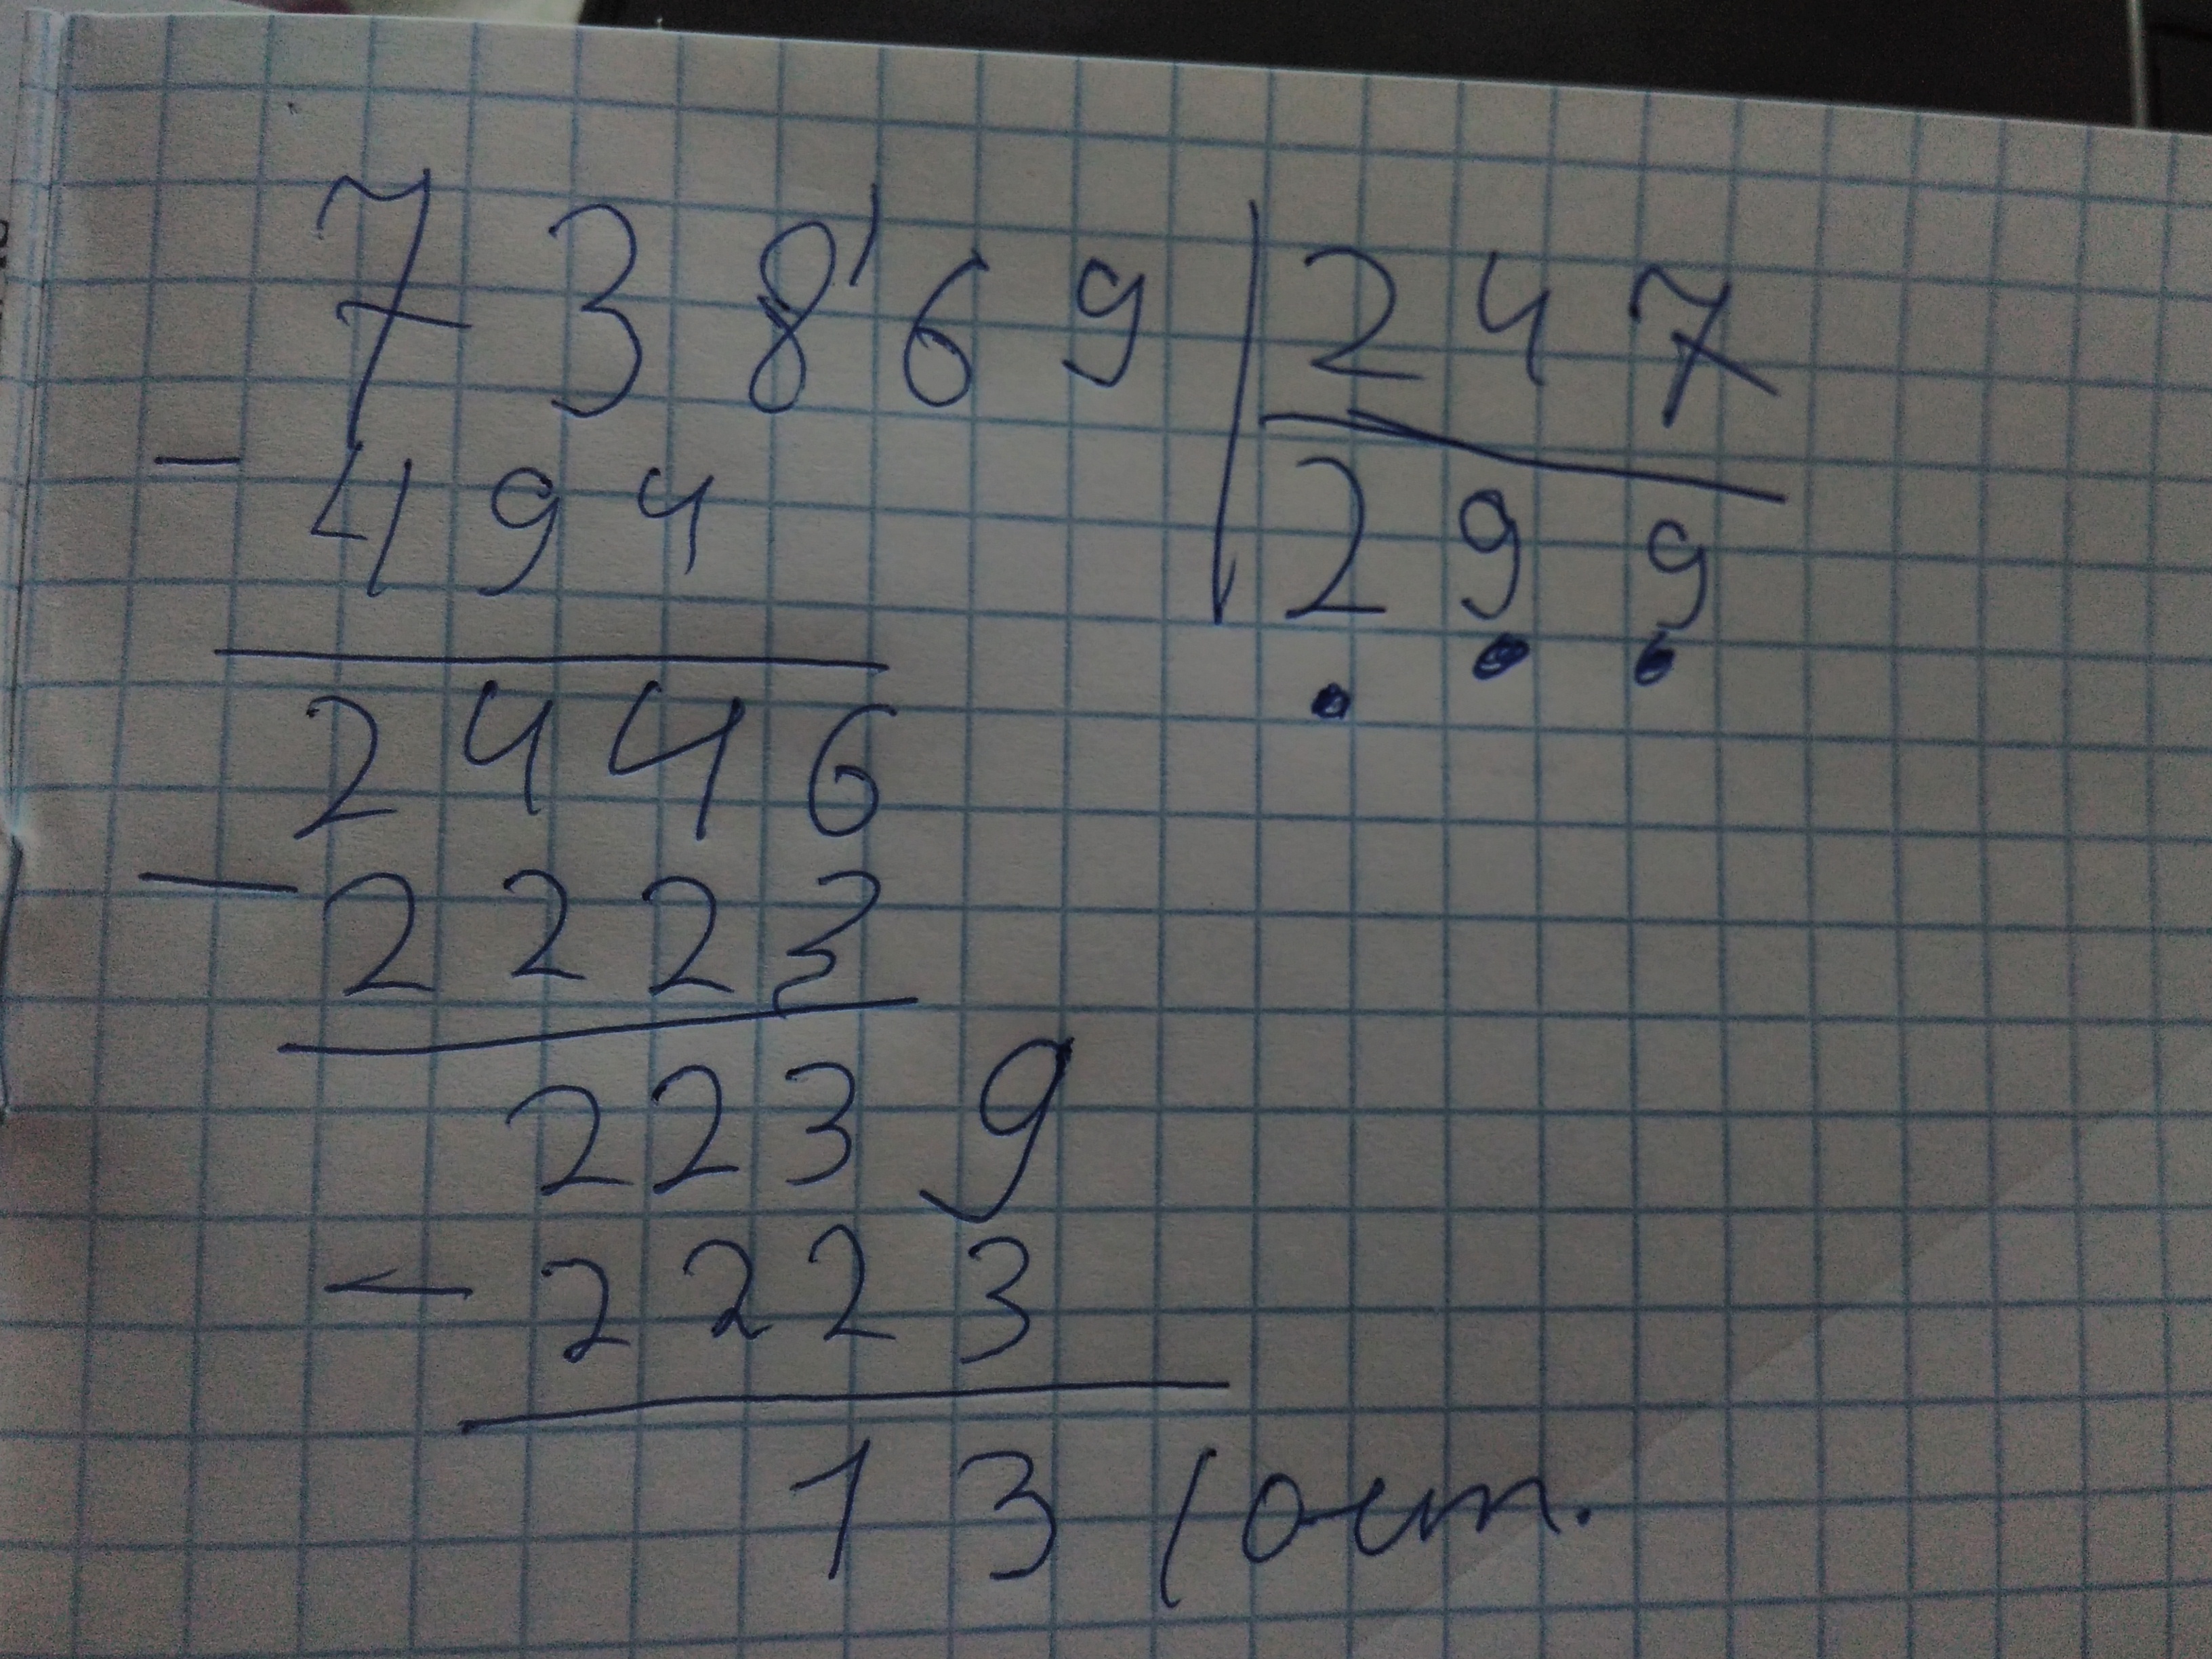 738'69 | 247
- 494 299
2446
- 2223
2239
- 2223
13 (ост.